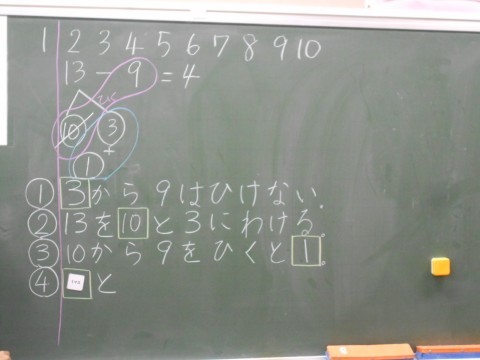 1 2 3 4 5 6 7 8 9 10
13 - 9 = 4
ひく
10 3
+
1
① 3から9はひけない.
② 13を10と3にわける。
③ 10から9をひくと1。
④ と